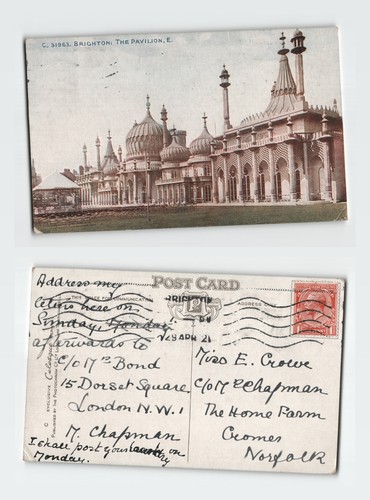 C. 31963. BRIGHTON: THE PAVILION, E.
POST CARD
THIS SPACE FOR COMMUNICATION
ADDRESS
BRIGHTON
PM
29 APR 21
Address my
letters here on
Sunday, Monday
afterwards to
C/o Mrs Bond
15 Dorset Square
London N.W. 1
M. Chapman
I shall post your laundry
Monday.
Miss E. Crowe
C/o Mrs Chapman
The Home Farm
Cromes
Norfolk
EXCLUSIVE Celesque